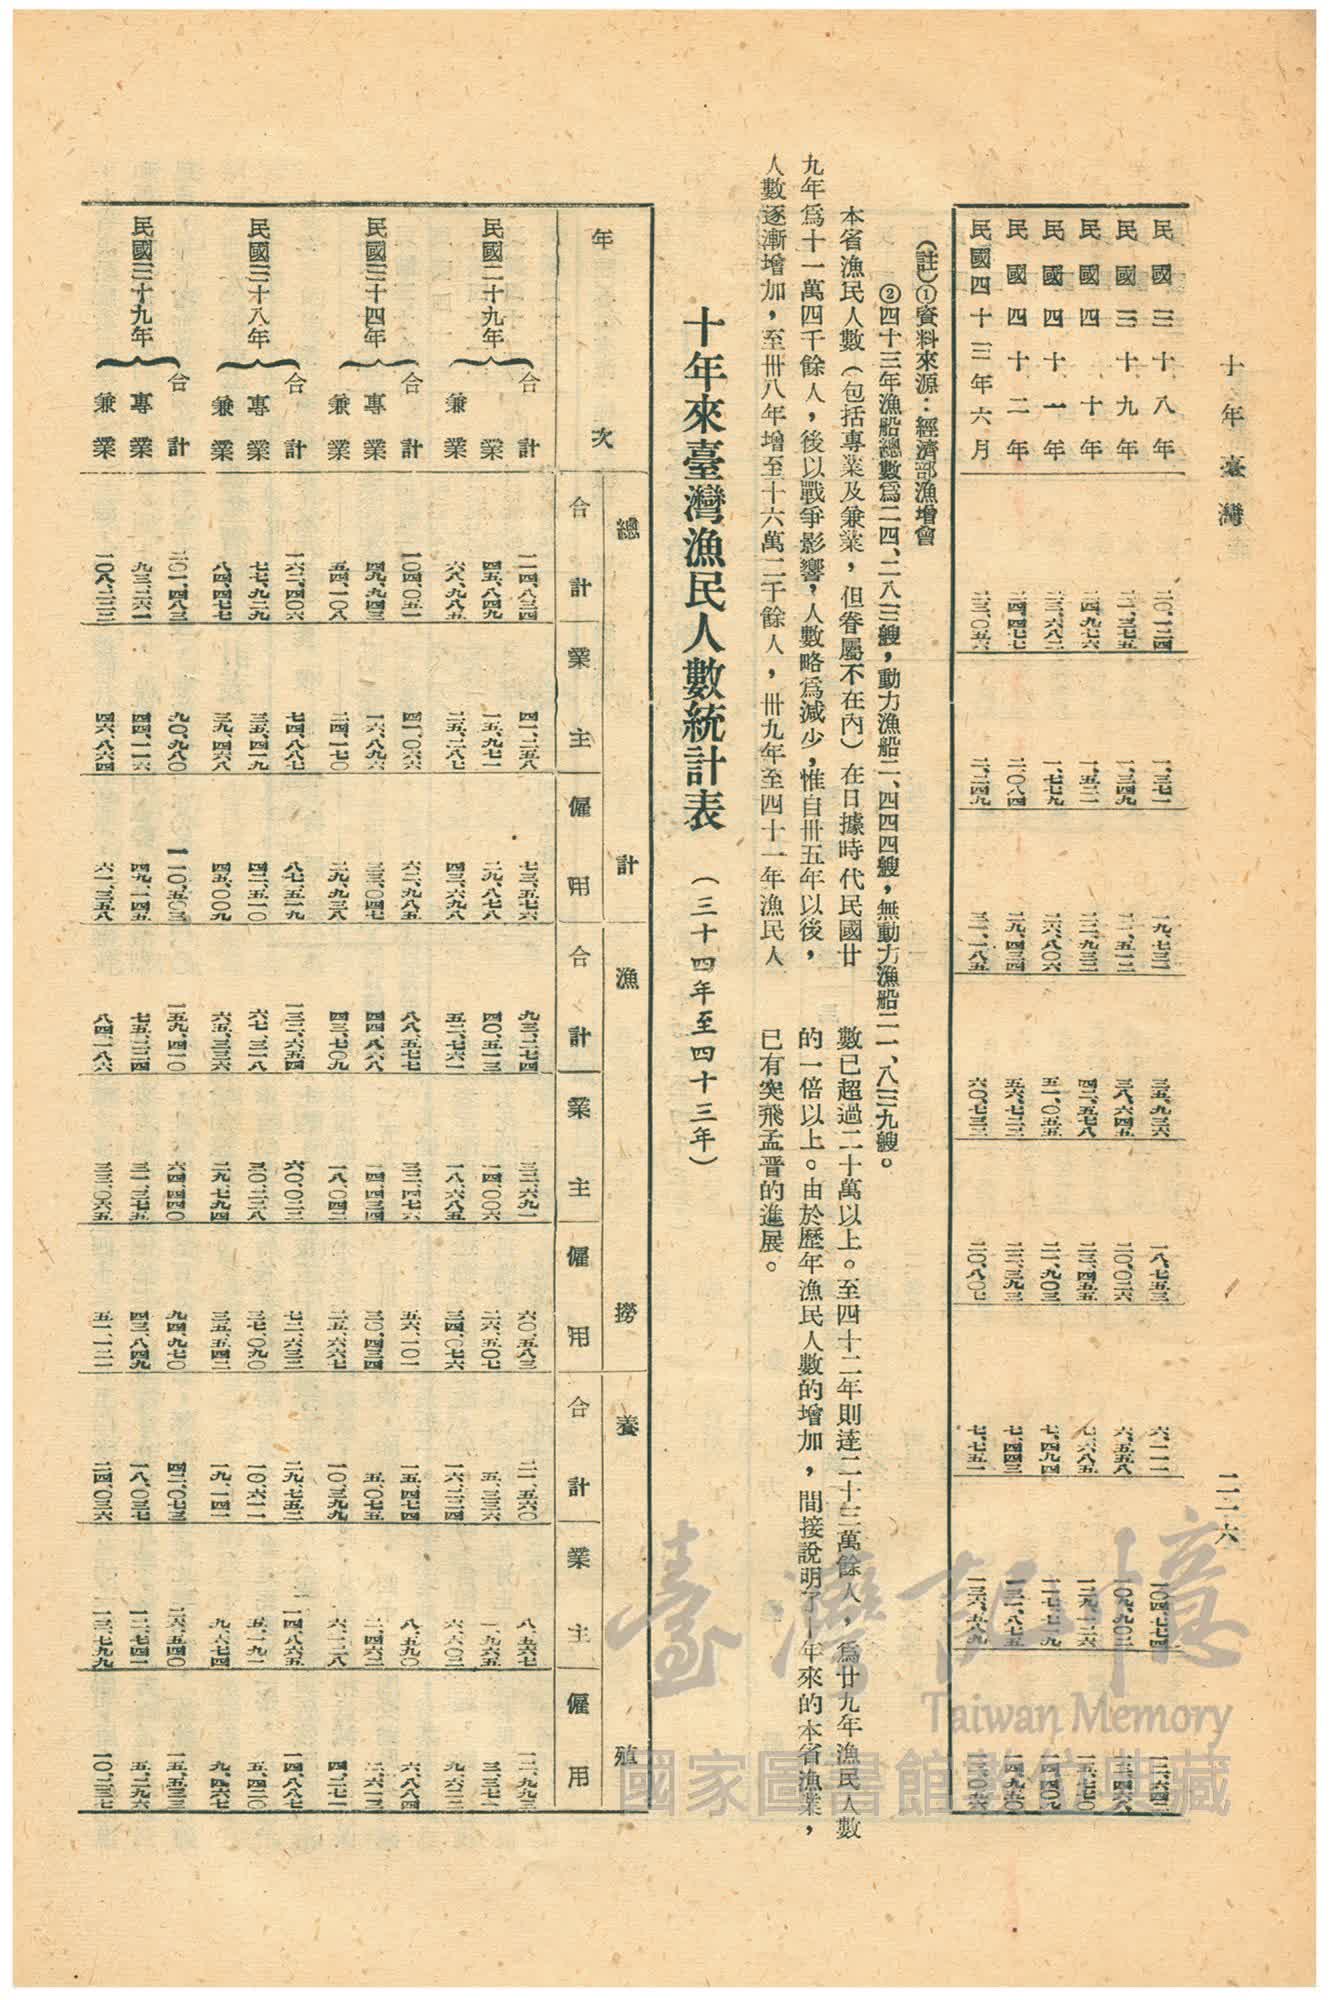 十年臺灣
二二六
民國三十八年 二〇、一二四 一、三七一 一九、七三二 三五、九三六 一八、七五三 六、一一一 一〇四、七七四 一二、六四二
民國三十九年 二一、三七五 一、三四九 二一、五一二 三八、六四五 二〇、〇二六 六、五五八 一〇九、九〇二 一三、四六八
民國四十年 二四、九七六 一、五二一 二二、九三二 四二、五七八 二三、四五五 七、六八五 一一九、一二六 一五、七七〇
民國四十一年 二三、六八二 一、七七九 二六、八〇六 五一、〇五五 二一、九〇三 七、四九四 一一七、七一九 一四、四〇九
民國四十二年 二四、四七七 二、〇八四 二九、四三四 五六、七二三 二二、三九三 七、四四三 一三一、八七五 一四、九五〇
民國四十三年六月 二三、〇五六 二、二四九 三一、一八五 六〇、七三三 二〇、八〇七 七、七五一 一三六、五八九 一三、〇五六
(註)①資料來源:經濟部漁增會
②四十三年漁船總數爲二四、二八三艘,動力漁船二、四四四艘,無動力漁船二一、八三九艘。
本省漁民人數(包括專業及兼業,但眷屬不在內)在日據時代民國廿
九年爲十一萬四千餘人,後以戰爭影響,人數略爲減少,惟自卅五年以後,
人數逐漸增加,至卅八年增至十六萬二千餘人,卅九年至四十一年漁民人
數已超過二十萬以上。至四十二年則達二十三萬餘人,爲廿九年漁民人數
的一倍以上。由於歷年漁民人數的增加,間接說明了十年來的本省漁業,
已有突飛孟晋的進展。
十年來臺灣漁民人數統計表 (三十四年至四十三年)
年次 總計 漁撈 養殖
合計 業主 僱用 合計 業主 僱用 合計 業主 僱用
民國二十九年
合計 一一四、八三四 四一、二五八 七三、五七六 九三、二七四 三二、六九一 六〇、五八三 二一、五六〇 八、五六七 一二、九九三
業 四五、八四九 一五、九七一 二九、八七八 四〇、五一三 一四、〇〇六 二六、五〇七 五、三三六 一、九六五 三、三七一
兼業 六八、九八五 二五、二八七 四三、六九八 五二、七六一 一八、六八五 三四、〇七六 一六、二二四 六、六〇二 九、六二二
民國三十四年
合計 一〇四、〇五一 四一、〇六六 六二、九八五 八八、五七七 三二、四七六 五六、一〇一 一五、四七四 八、五九〇 六、八八四
專業 四九、九四三 一六、八九六 三三、〇四七 四四、八六八 一四、四三四 三〇、四三四 五、〇七五 二、四六二 二、六一三
兼業 五四、一〇八 二四、一七〇 二九、九三八 四三、七〇九 一八、〇四二 二五、六六七 一〇、三九九 六、一二八 四、二七一
民國三十八年
合計 一六二、四〇六 七四、八八七 八七、五一九 一三二、六五四 六〇、〇二二 七二、六三二 二九、七五二 一四、八六五 一四、八八七
專業 七七、九二九 三五、四一九 四二、五一〇 六七、三一八 三〇、二二八 三七、〇九〇 一〇、六一一 五、一九一 五、四二〇
兼業 八四、四七七 三九、四六八 四五、〇〇九 六五、三三六 二九、七九四 三五、五四二 一九、一四一 九、六七四 九、四六七
民國三十九年
合計 二〇一、四八三 九〇、九八〇 一一〇、五〇三 一五九、四一〇 六四四四〇 九四、九七〇 四二、〇七三 二六、五四〇 一五、五三三
專業 九三、二六一 四四、一一六 四九、一四五 七五、二二四 三一、三七五 四三、八四九 一八、〇三七 一二、七四一 五、二九六
兼業 一〇八、二二二 四六、八六四 六一、三五八 八四、一八六 三三、〇六五 五一、一二一 二四、〇三六 一三、七九九 一〇、二三七
臺灣記憶
Taiwan Memory
國家圖書館數位典藏